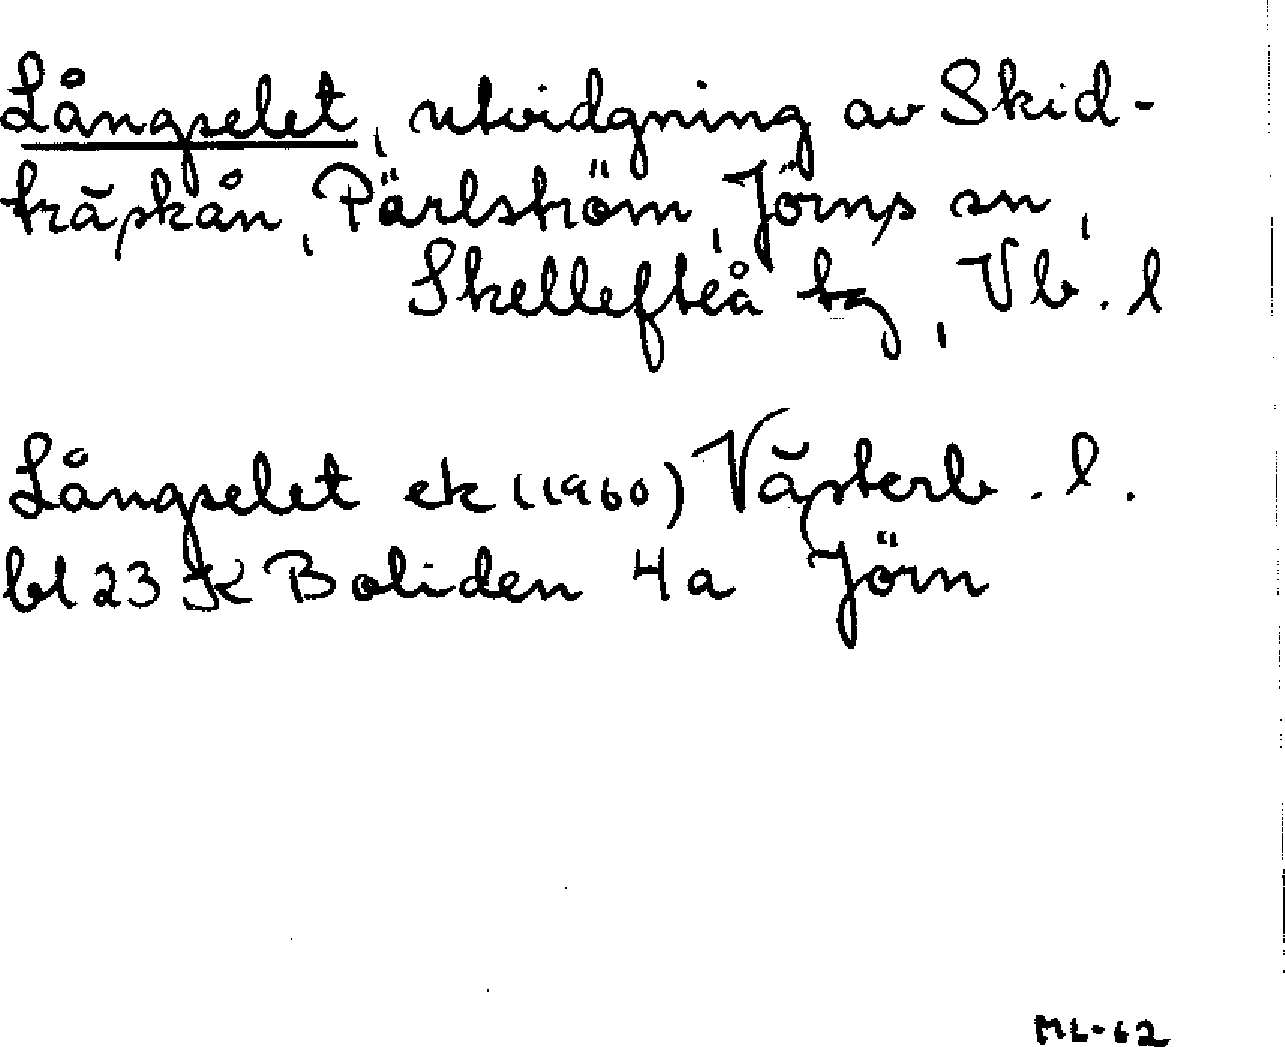 Långselet, utvidgning av Skid-
träskån, Pärlström, Jörns sn,
Skellefteå tg, Vb. l
Långselet ek (1960) Västerb. l.
bl 23 K Boliden 4a Jörn
ML-62